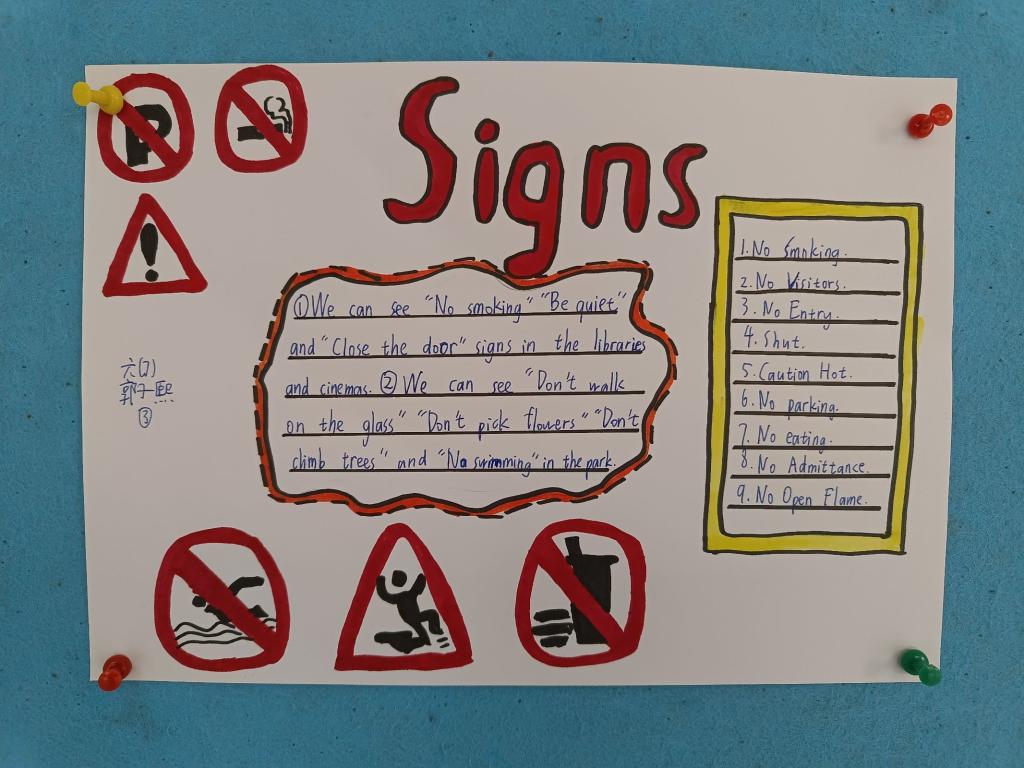 P
Signs
①We can see "No smoking" "Be quiet"
and "Close the door" signs in the libraries
and cinemas. ②We can see "Don't walk
on the glass" "Don't pick flowers" "Don't
climb trees" and "No swimming" in the park.
1.No Smoking.
2.No Visitors.
3.No Entry.
4.Shut.
5.Caution Hot.
6.No parking.
7.No eating.
8.No Admittance.
9.No Open Flame.
六(7)
郭子熙
③